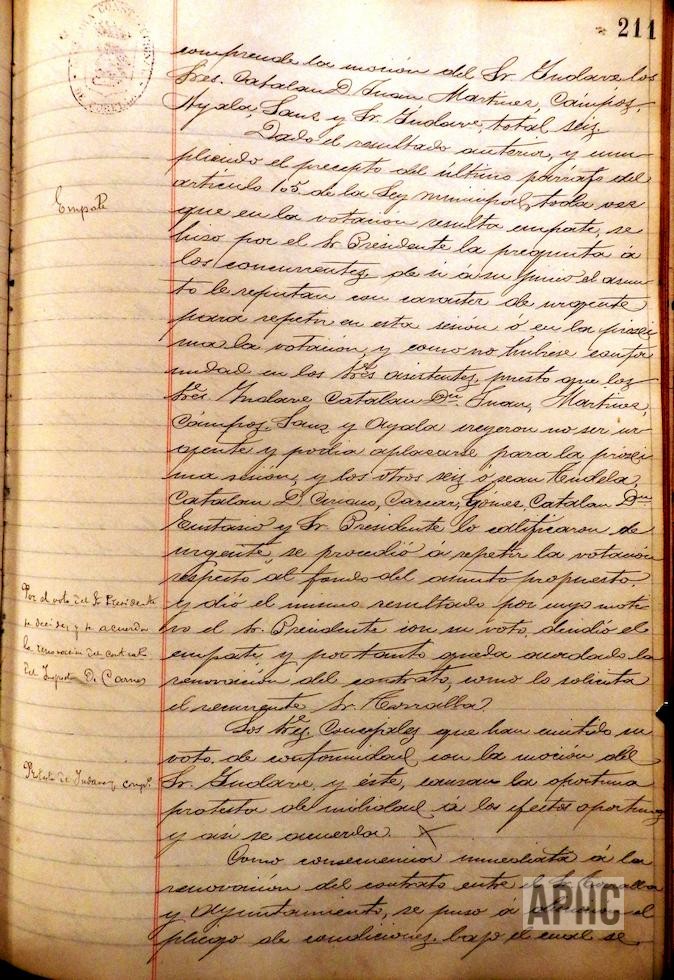 211
comprende la moción del Sr. Gudave los
Sres. Catalan D. Juan Martinez, Cámpos,
Ayala, Sanz y Sr. Gudave, total seis.
Dado el resultado anterior, y cum-
pliendo el precepto del último párrafo del
artículo 105 de la Ley municipal, toda vez
que en la votación resulta empate, se
Empate
hizo por el Sr. Presidente la pregunta á
los concurrentes, de si á su juicio el asun-
to le reputan con carácter de urgente
para repetir en esta sesion ó en la próxi
ma la votación, y como no hubiese confor
midad en los Sres. asistentes, puesto que los
Sres. Gudave Catalan Dn. Juan, Martinez,
Cámpos, Sanz y Ayala creyeron no ser ur
gente y podia aplazarse para la próxi
ma sesión, y los otros seis ó sean Tudela,
Catalan D. Ciriaco, Carcar, Gómez, Catalan Dn.
Eustasio y Sr. Presidente lo calificaron de
urgente, se procedió á repetir la votación
respecto al fondo del asunto propuesto,
Por el voto del Sr. Presidente
se decide, y se acuerda
la renovación del contrato
del Impto. D. Carnes
y dió el mismo resultado por cuyo moti-
vo el Sr. Presidente con su voto, decidió el
empate, y por tanto queda acordado la
renovación del contrato, como lo solicita
el recurrente Sr. Torralba.
Los Sres. Concejales que han emitido su
voto, de conformidad con la moción del
Protesta de Gudave y comps.
Sr. Gudave, y éste, causan la oportuna
protesta de nulidad á los efectos oportunos
y asi se acuerda.
Como consecuencia inmediata á la
renovación del contrato entre el Sr. Torralba
y Ayuntamiento, se puso á el
pliego de condiciones, bajo el cual se
APHC